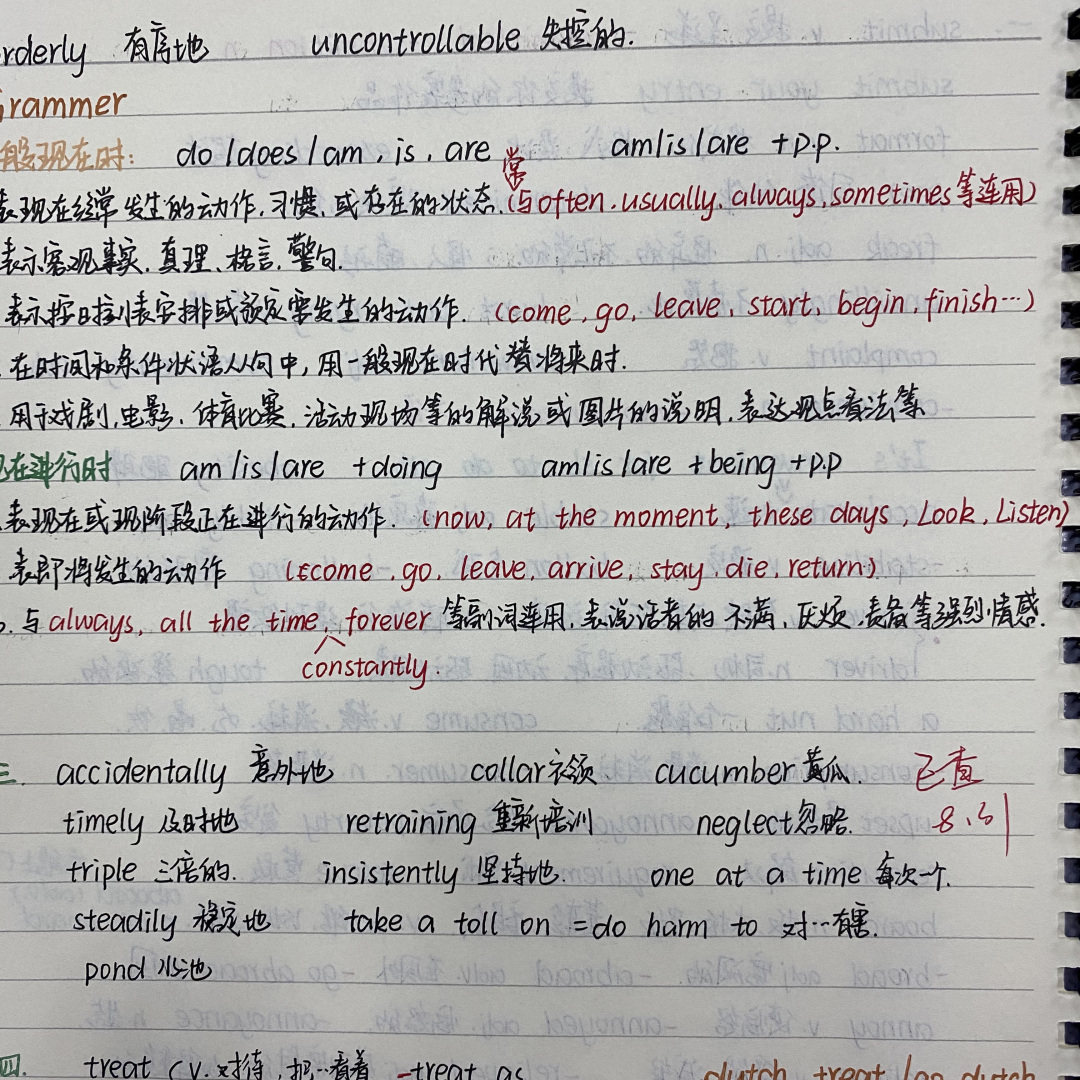 rderly 有序地 uncontrollable 失控的.
Grammer
般现在时: do/does/am, is, are am/is/are +p.p.
表现在经常发生的动作.习惯.或存在的状态.(常与often.usually.always,sometimes等连用)
表示客观事实.真理.格言.警句.
表示按时刻表安排或预定要发生的动作. (come, go, leave, start, begin, finish…)
在时间和条件状语从句中,用一般现在时代替将来时.
用于戏剧,电影.体育比赛.活动现场等的解说或图片的说明.表达观点看法等
现在进行时 am/is/are +doing am/is/are +being +p.p
表现在或现阶段正在进行的动作. (now, at the moment, these days, Look, Listen)
表即将发生的动作 (come, go, leave, arrive, stay, die, return)
与always, all the time, forever 等副词连用,表说话者的不满,厌烦,责备等强烈情感.
constantly.
三. accidentally 意外地 collar衣领. cucumber 黄瓜. 已查
timely 及时地 retraining 重新培训 neglect忽略. 8.31
triple 三倍的. insistently 坚持地. one at a time 每次一个.
steadily 稳定地 take a toll on =do harm to 对…有害.
pond 水池
四. treat (v.对待,把…看着 -treat as dutch treat /go dutch